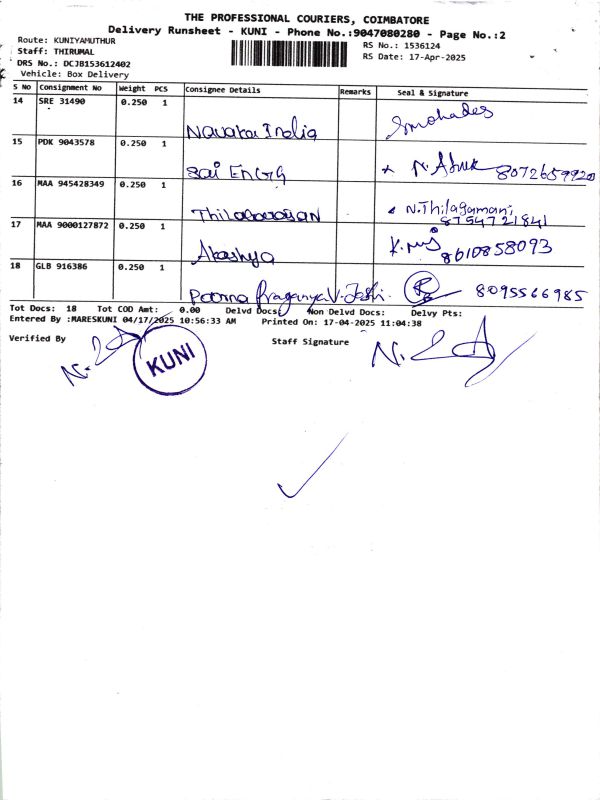 THE PROFESSIONAL COURIERS, COIMBATORE
Delivery Runsheet - KUNI - Phone No.:9047080280 - Page No.:2
Route: KUNIYAMUTHUR
RS No.: 1536124
Staff: THIRUMAL
RS Date: 17-Apr-2025
DRS No.: DCJB153612402
Vehicle: Box Delivery
S No Consignment No Weight PCS Consignee Details Remarks Seal & Signature
14 SRE 31490 0.250 1
India
15 PDK 9043578 0.250 1
Sai ENGG N. 8072659920
16 MAA 945428349 0.250 1
N.Thilagamani
8754721841
17 MAA 9000127872 0.250 1
Akashya 8610858093
18 GLB 916386 0.250 1
Poorna Praganya V. Joshi. 8095566985
Tot Docs: 18 Tot COD Amt: 0.00 Delvd Docs: Non Delvd Docs: Delvy Pts:
Entered By :MARESKUNI 04/17/2025 10:56:33 AM Printed On: 17-04-2025 11:04:38
Verified By Staff Signature
KUNI